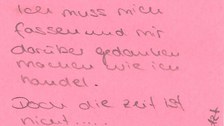 Ich muss mich
fassen und mir
darüber gedanken
machen wie ich
handel.
Doch die zeit ist
nicht.....